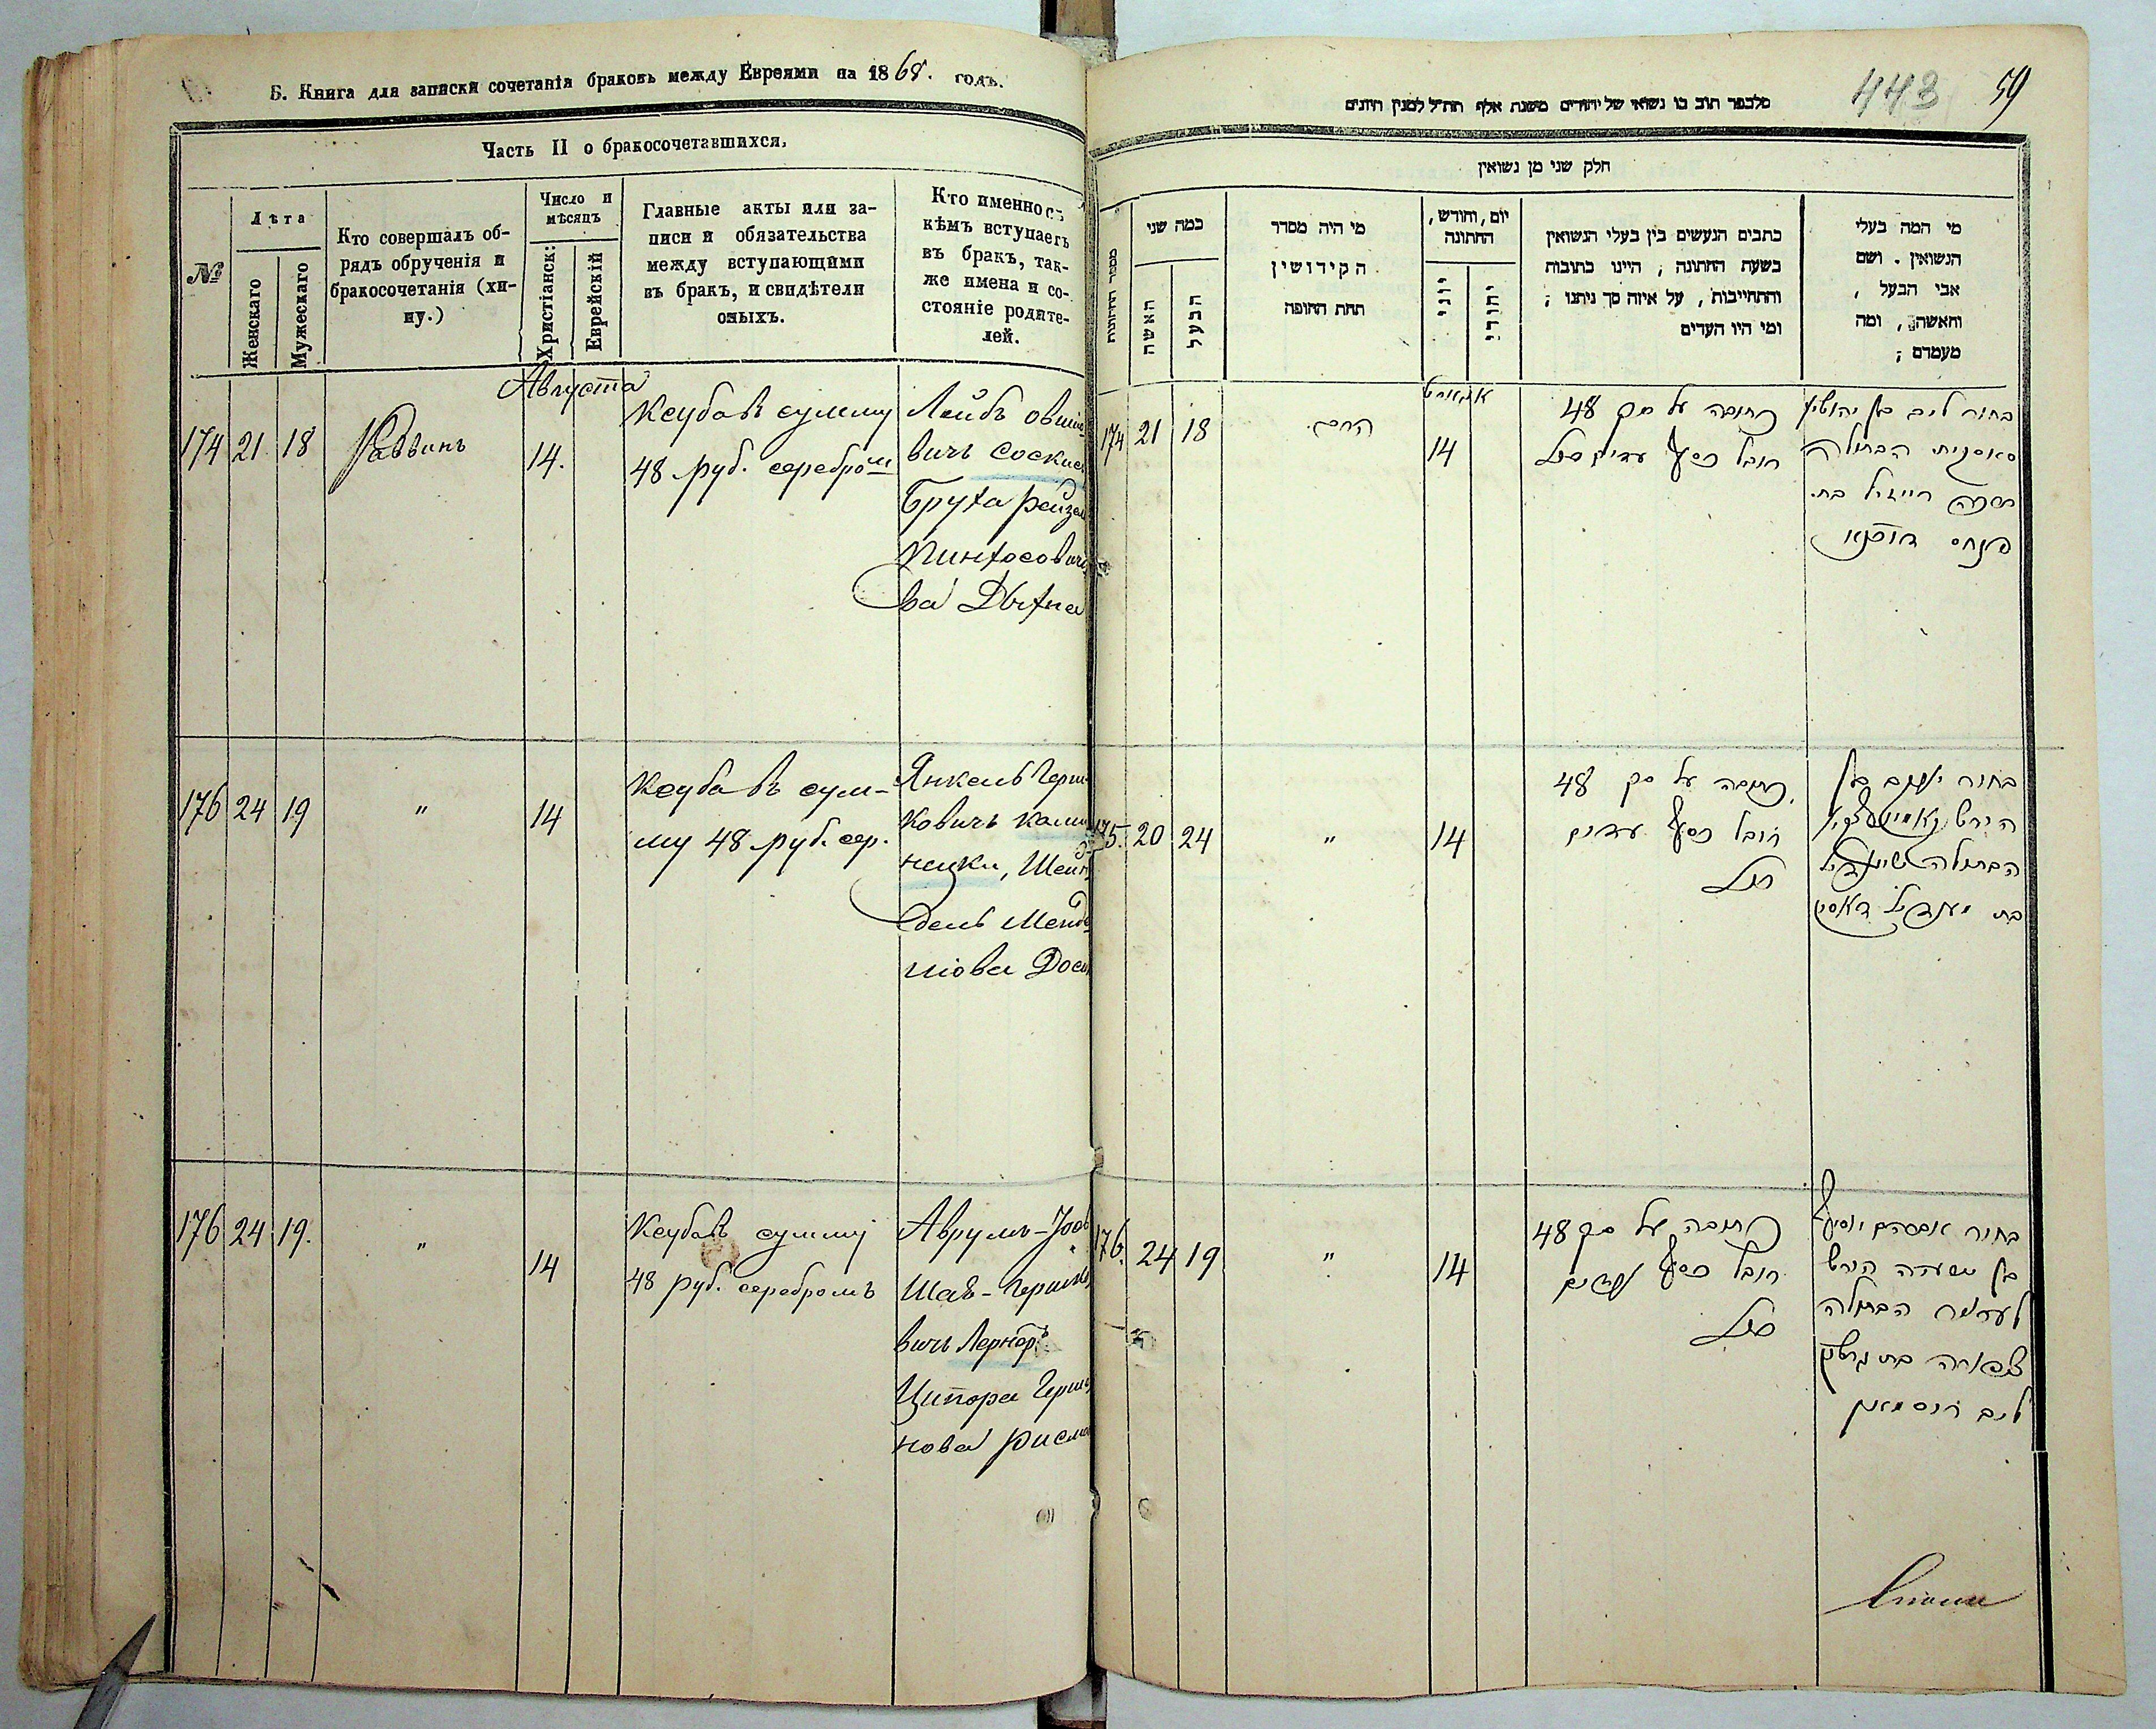 Б. Книга для записки сочетанія браковъ между Евреями на 1868. годъ.
Часть II о бракосочетавшихся,
№
Лѣта
Женскаго
Мужескаго
Кто совершалъ об-
рядъ обрученія и
бракосочетанія (хи-
пу.)
Число и
мѣсяцъ
Христіанск:
Еврейскій
Главные акты или за-
писи и обязательства
между вступающими
въ бракъ, и свидѣтели
оныхъ.
Кто именно съ
кѣмъ вступаетъ
въ бракъ, так-
же имена и со-
стояніе родите-
лей.
Августа
174 21 18 Раввинъ 14.
Ксуба въ сумму
48 руб. серебромъ
Лейбъ
вичъ
Бруха Рейзел
Пинхосович
ва
176 24 19 " 14
Ксуба въ сум-
му 48 руб. сер.
Янкель Герш
ковичъ Ками
нецки, Шейн
дель Менд
176 24 19. " 14
Ксуба въ сумму
48 руб. серебромъ
Аврумъ-
Шая-Гершко
вичъ Лернер
Ципора Герш
нова Рисма
443 59
מלבפר תוב בו נשואי של יהודים משנת אלף תת״ל למנין היונים
חלק שני מן נשואין
מספר החתונות
כמה שני
האשה
הבעל
מי היה מסדר
הקידושין
תחת החופה
יום, וחודש,
החתונה
יוני
יהודי
כתבים הנעשים בין בעלי הנשואין
בשעת החתונה, היינו כתובות
והתחייבות, על איזה סך ניתנו;
ומי היו העדים
מי המה בעלי
הנשואין. ושם
אבי הבעל,
והאשה, ומה
מעמדם;
אוגוסט
174 21 18 הרב 14
כתובה על סך 48
רובל כסף עדים
בחור ליב בן
הבתולה
ברכה רייזיל בת
פנחס
175. 20 24 " 14
כתובה על סך 48
רובל כסף עדים
בחור יענקב בן
הירש
הבתולה שיינדיל
בת מענדיל
176. 24 19 " 14
כתובה על סך 48
רובל כסף עדים
בחור אברהם יוסף
בן ישעיה הירש
לערנער הבתולה
צפורה בת גרשון
ליב ריסמאן